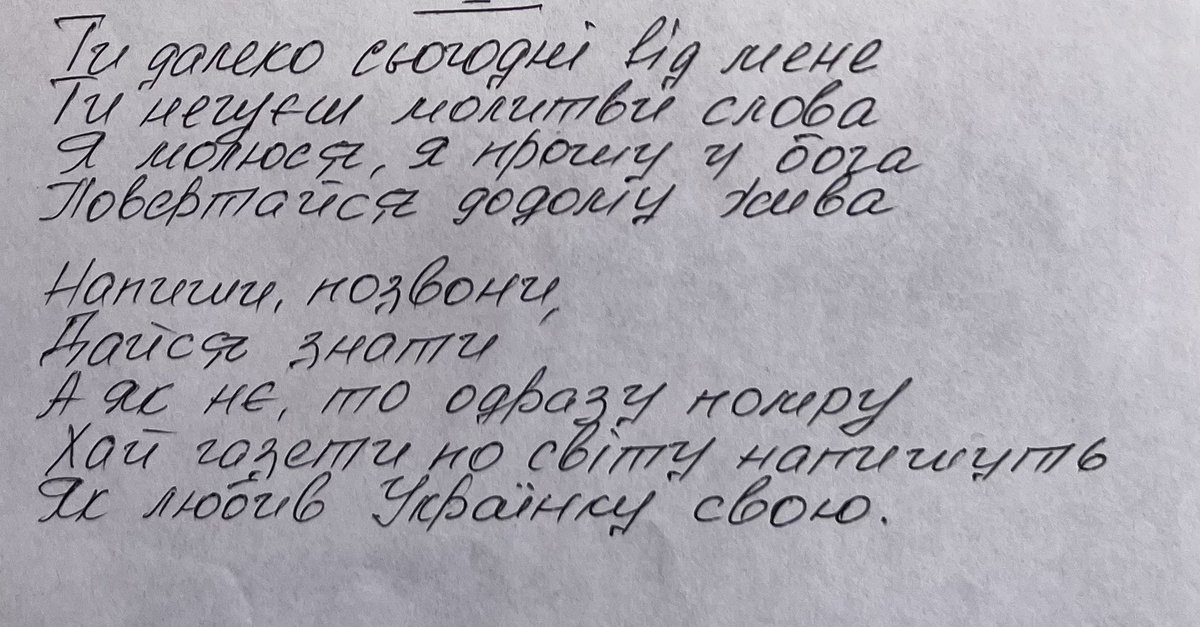 Ти далеко сьогодні від мене
Ти нечуєш молитви слова
Я молюся, я прошу у бога
Повертайся додому жива
Напиши, позвони,
Дайся знати
А як нє, то одразу помру
Хай газети по світу напишуть
Як любив Українку свою.